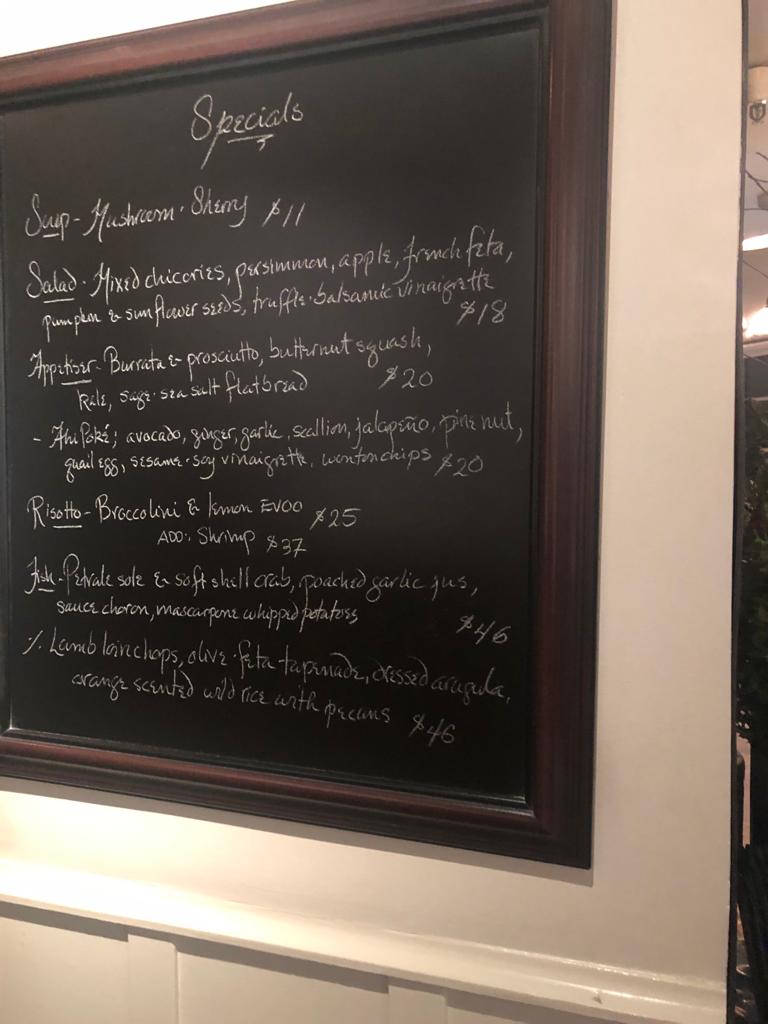 Specials
Soup - Mushroom · Sherry $11
Salad · Mixed chicories, persimmon, apple, french feta,
pumpkin & sunflower seeds, truffle · balsamic vinaigrette
$18
Appetiser - Burrata & prosciutto, butternut squash,
kale, sage · sea salt flatbread $20
- Ahi Poké; avocado, ginger, garlic, scallion, jalapeño, pine nut,
quail egg, sesame · soy vinaigrette, wonton chips $20
Risotto - Broccolini & lemon EVOO $25
ADD: Shrimp $37
Fish - Petrale sole & soft shell crab, poached garlic jus,
sauce choron, mascarpone whipped potatoes
$46
Lamb loin chops, olive · feta tapenade, dressed arugula,
orange scented wild rice with pecans $46